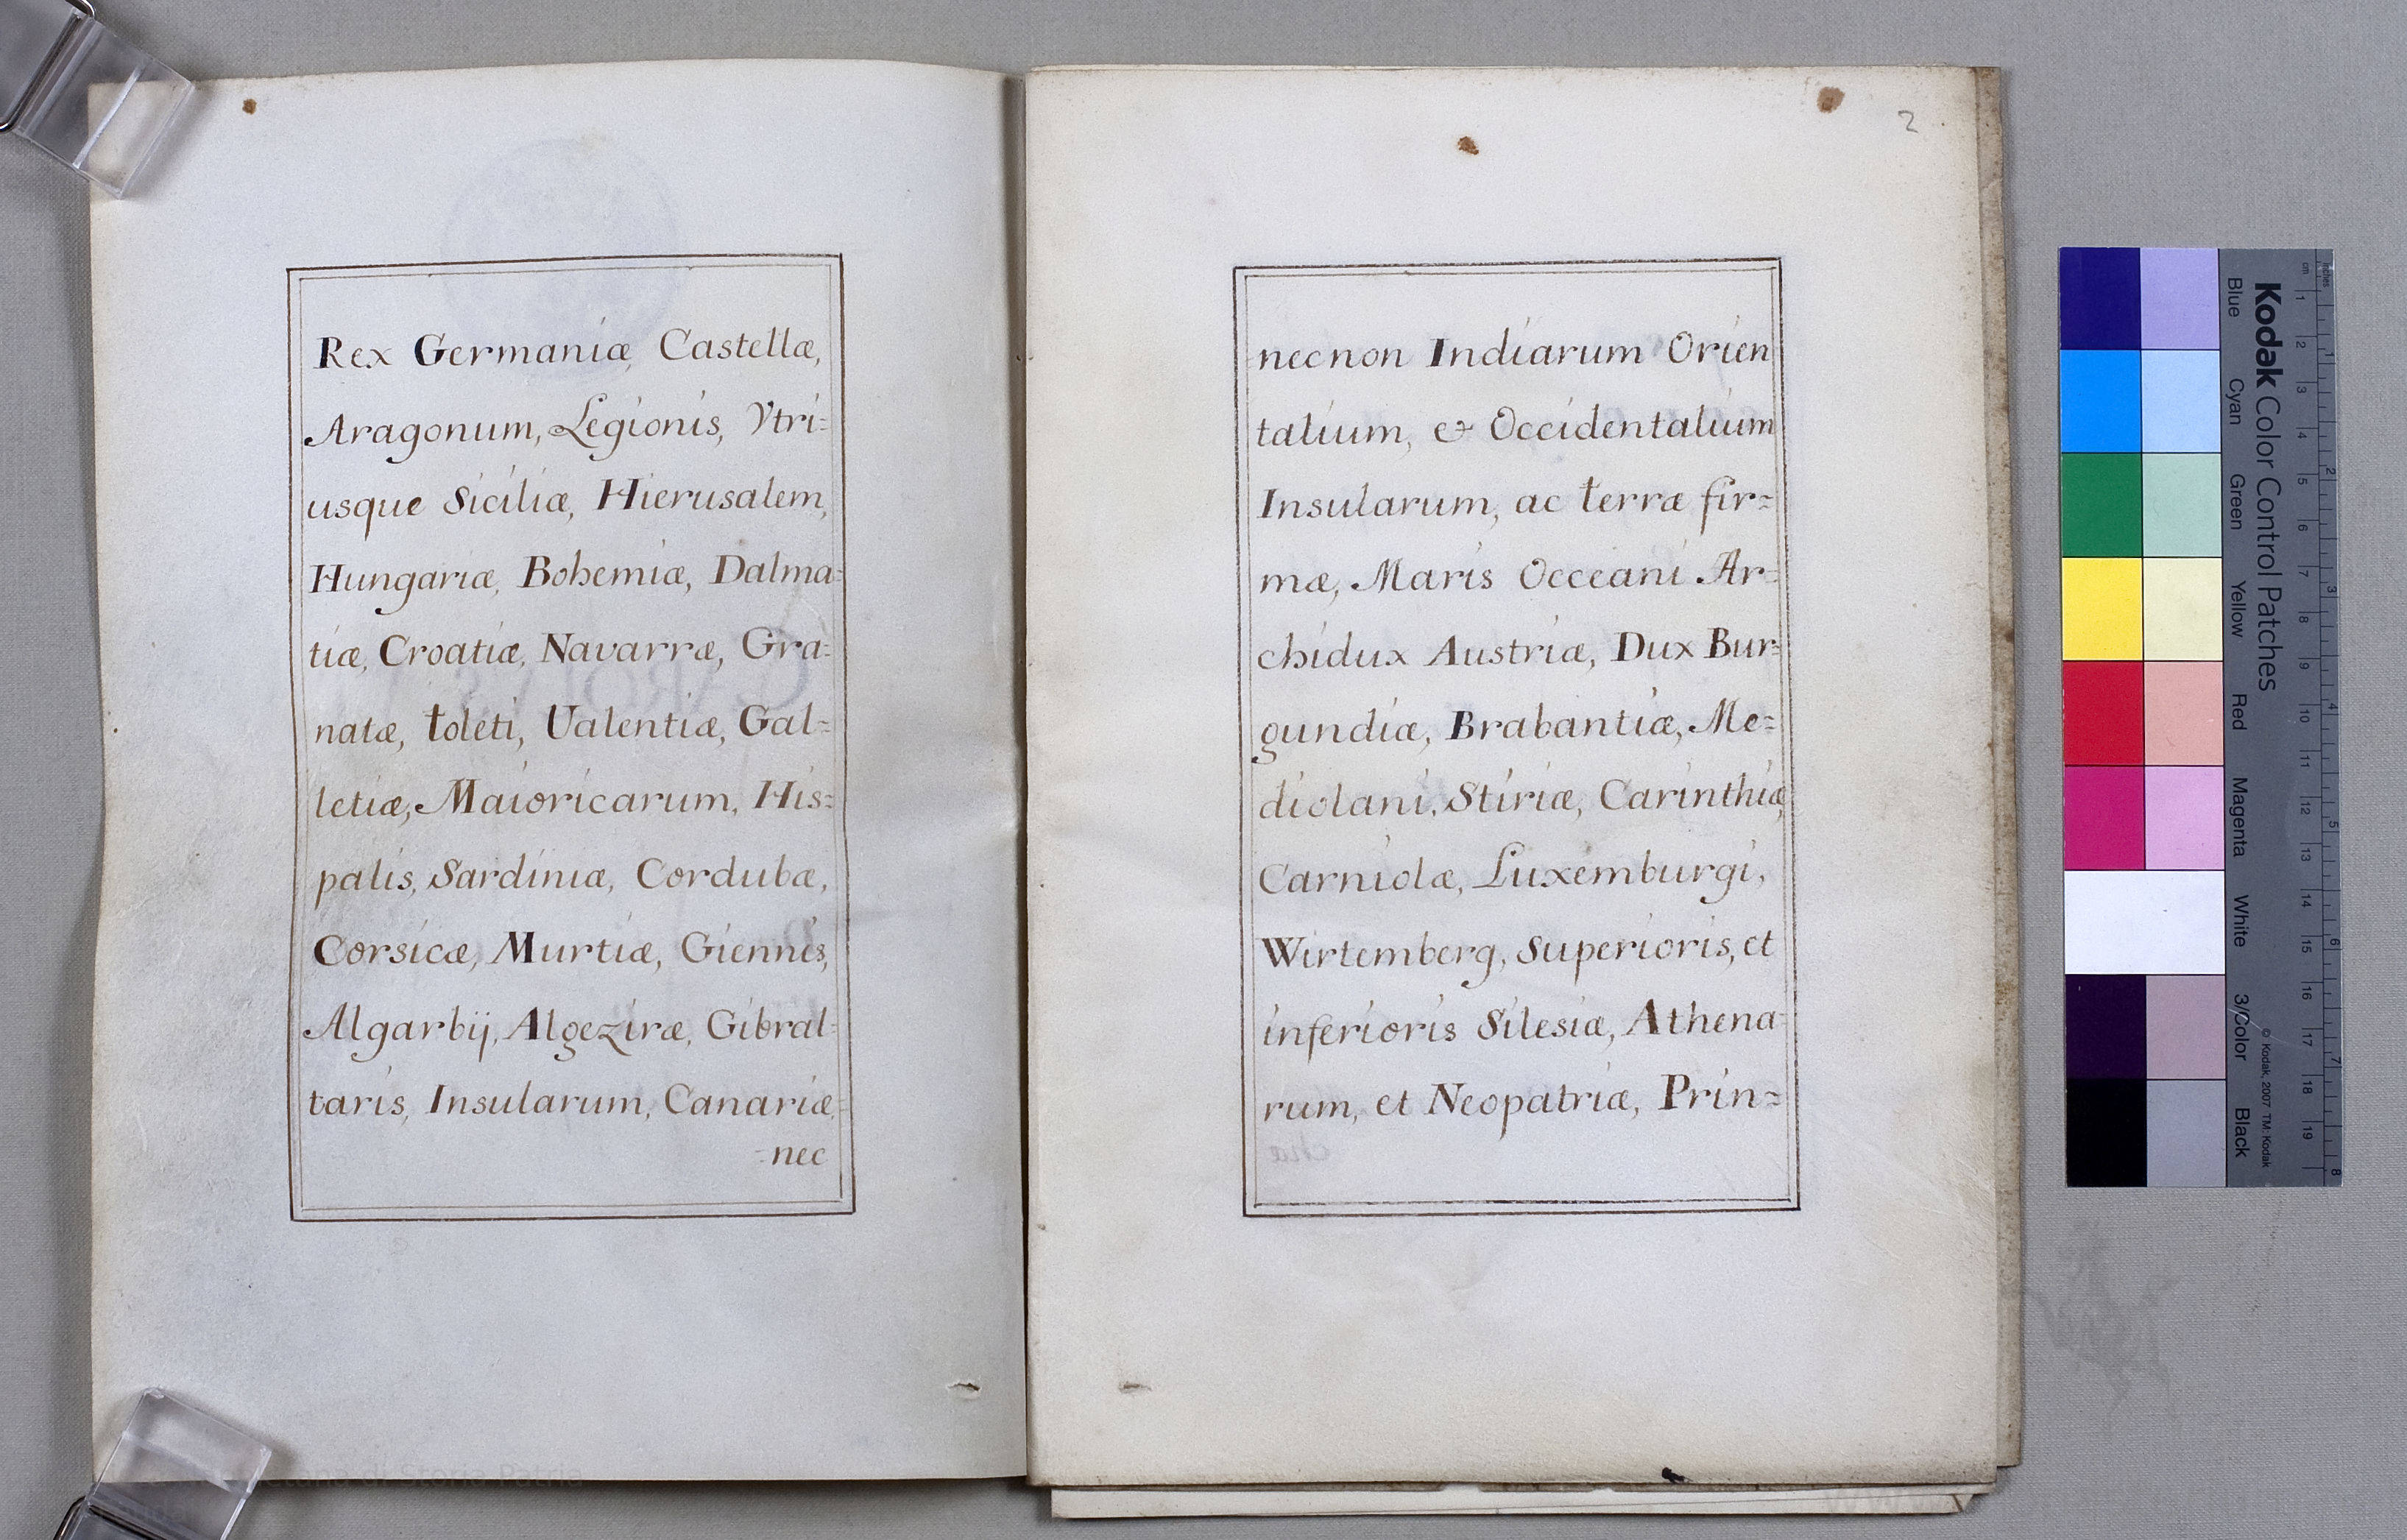 Rex Germaniæ, Castellæ,
Aragonum, Legionis, Vtri=
usque Siciliæ, Hierusalem,
Hungariæ, Bohemiæ, Dalma=
tiæ, Croatiæ, Navarræ, Gra=
natæ, toleti, Ualentiæ, Gal=
letiæ, Maioricarum, His=
palis, Sardiniæ, Cordubæ,
Corsicæ, Murtiæ, Giennis,
Algarbij, Algeziræ, Gibral=
taris, Insularum, Canariæ,
nec
2
necnon Indiarum Orien
talium, & Occidentalium
Insularum, ac terræ fir=
mæ, Maris Occeani Ar=
chidux Austriæ, Dux Bur=
gundiæ, Brabantiæ, Me=
diolani, Stiriæ, Carinthiæ,
Carniolæ, Luxemburgi,
Wirtemberg, Superioris, et
inferioris Silesiæ, Athena=
rum, et Neopatriæ, Prin=
Kodak Color Control Patches
Blue Cyan Green Yellow Red Magenta White 3/Color Black
© Kodak, 2007 TM: Kodak
inches 1 2 3 4 5 6 7 8
cm 1 2 3 4 5 6 7 8 9 10 11 12 13 14 15 16 17 18 19
di Storia Patria